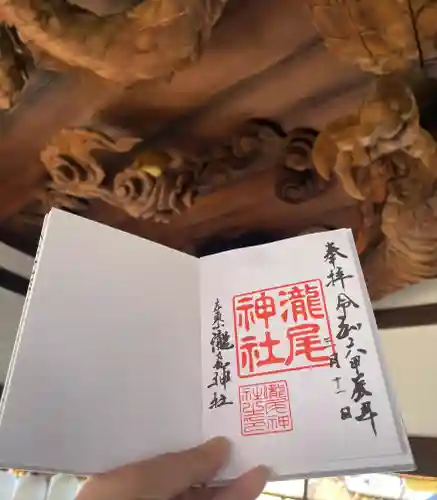 奉拝 令和六甲辰年
三月十一日
瀧尾
神社
瀧尾神社
瀧尾神
社之印